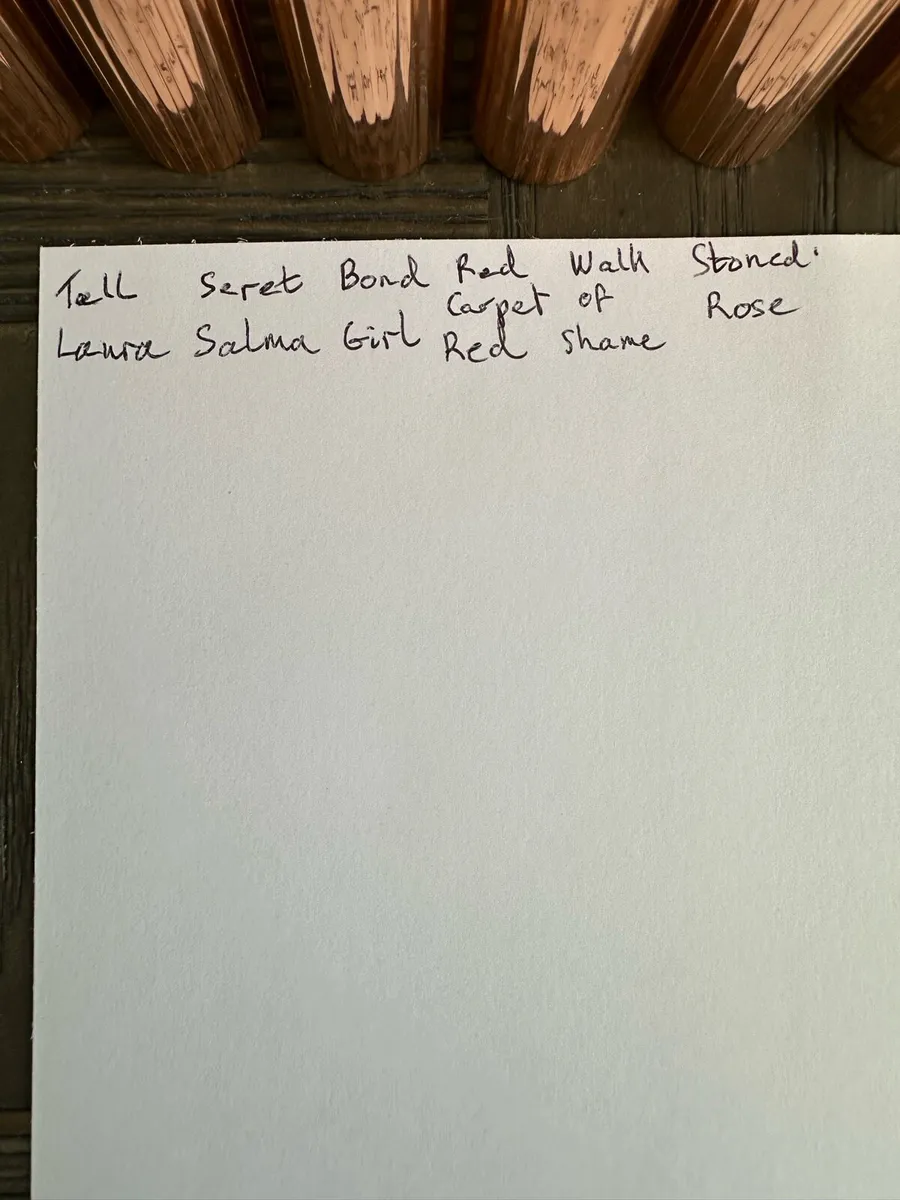 Tall Seret Bond Red Walk Stoned.
Carpet of Rose
Laura Salma Girl Red Shame